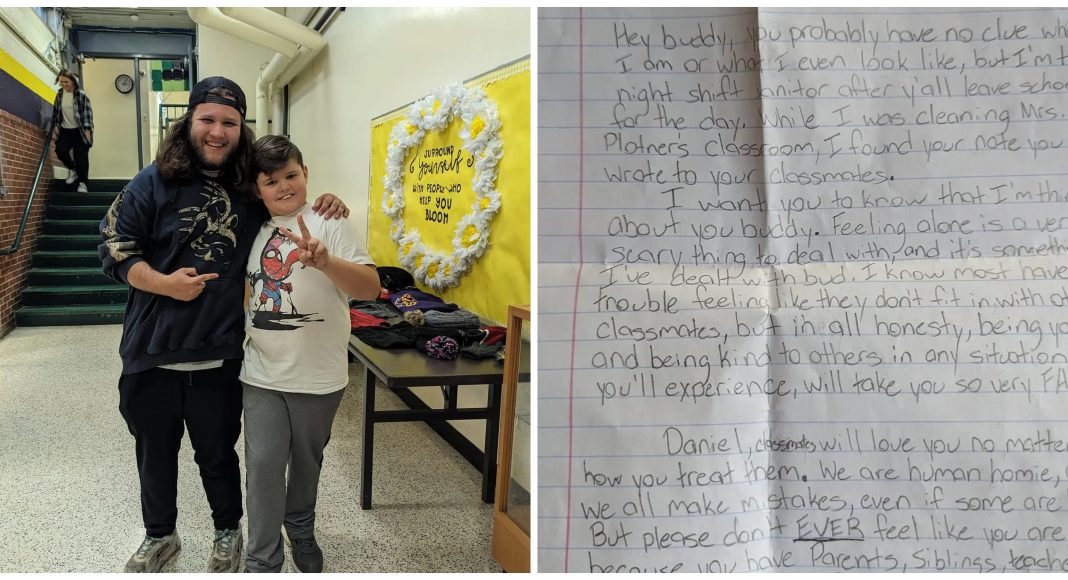 SURROUND
yourself
WITH PEOPLE WHO
HELP YOU
BLOOM
Hey buddy, you probably have no clue wh
I am or what I even look like, but I'm t
night shift janitor after y'all leave scho
for the day. While I was cleaning Mrs.
Plotner's classroom, I found your note you
wrote to your classmates.
I want you to know that I'm thi
about you buddy. Feeling alone is a ver
scary thing to deal with, and it's someth
I've dealt with bud. I know most have
trouble feeling like they don't fit in with ot
classmates, but in all honesty, being yo
and being kind to others in any situation
you'll experience, will take you so very FA
Daniel, classmates will love you no matte
how you treat them. We are human homie,
we all make mistakes, even if some are
But please don't EVER feel like you are
because you have Parents, Siblings, teache